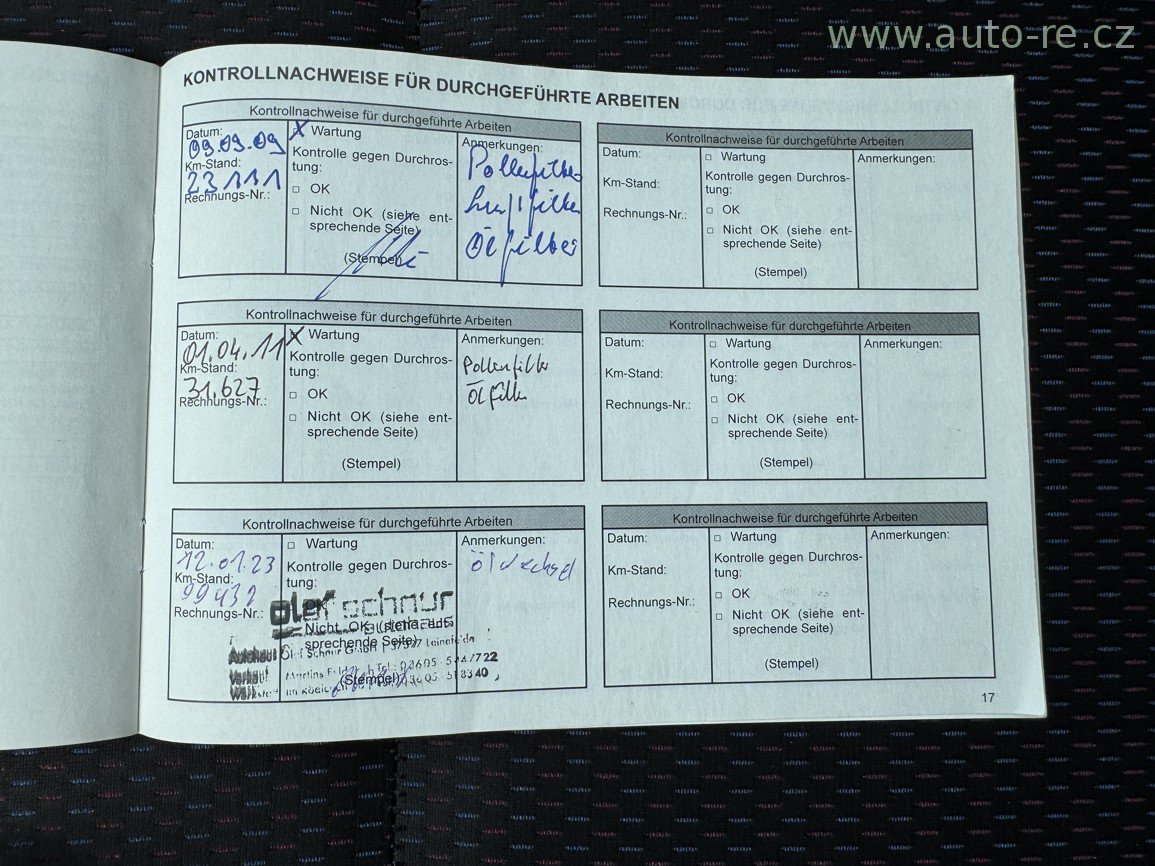 www.auto-re.cz
KONTROLLNACHWEISE FÜR DURCHGEFÜHRTE ARBEITEN
Kontrollnachweise für durchgeführte Arbeiten
Datum:
09.09.09
Km-Stand:
23111
Rechnungs-Nr.:
X Wartung
Kontrolle gegen Durchros-
tung:
□ OK
□ Nicht OK (siehe ent-
sprechende Seite)
(Stempel)
Anmerkungen:
Pollenfilter
Luftfilter
Ölfilter
Kontrollnachweise für durchgeführte Arbeiten
Datum:
Km-Stand:
Rechnungs-Nr.:
□ Wartung
Kontrolle gegen Durchros-
tung:
□ OK
□ Nicht OK (siehe ent-
sprechende Seite)
(Stempel)
Anmerkungen:
Kontrollnachweise für durchgeführte Arbeiten
Datum:
01.04.11
Km-Stand:
31.627
Rechnungs-Nr.:
X Wartung
Kontrolle gegen Durchros-
tung:
□ OK
□ Nicht OK (siehe ent-
sprechende Seite)
(Stempel)
Anmerkungen:
Pollenfilter
Ölfilter
Kontrollnachweise für durchgeführte Arbeiten
Datum:
Km-Stand:
Rechnungs-Nr.:
□ Wartung
Kontrolle gegen Durchros-
tung:
□ OK
□ Nicht OK (siehe ent-
sprechende Seite)
(Stempel)
Anmerkungen:
Kontrollnachweise für durchgeführte Arbeiten
Datum:
12.01.23
Km-Stand:
99432
Rechnungs-Nr.:
□ Wartung
Kontrolle gegen Durchros-
tung:
olef schnur
Nicht OK (siehe ent-
sprechende Seite)
Autohaus Olef Schnur GmbH | 37327 Leinefelde
Verkauf
(Stempel)
Anmerkungen:
Ölwechsel
Kontrollnachweise für durchgeführte Arbeiten
Datum:
Km-Stand:
Rechnungs-Nr.:
□ Wartung
Kontrolle gegen Durchros-
tung:
□ OK
□ Nicht OK (siehe ent-
sprechende Seite)
(Stempel)
Anmerkungen:
17